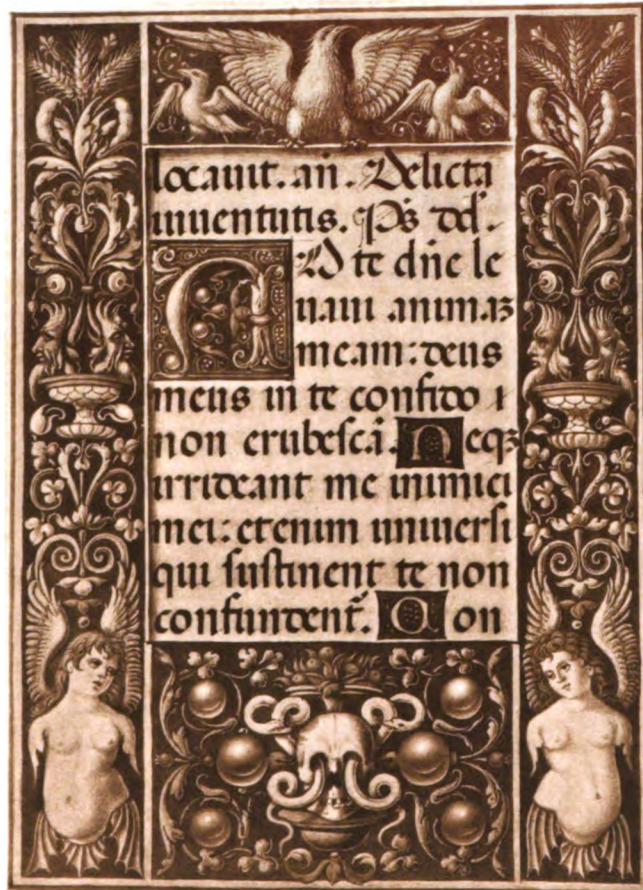 locauit. añ. Delicta
iuuentutis. Ps̄ del̄.
AD te dñe le
uaui animaʒ
meam: deus
meus in te confido i
non erubescā. Neqʒ
irrideant me inimici
mei: etenim uniuersi
qui sustinent te non
confundent᷑. Con